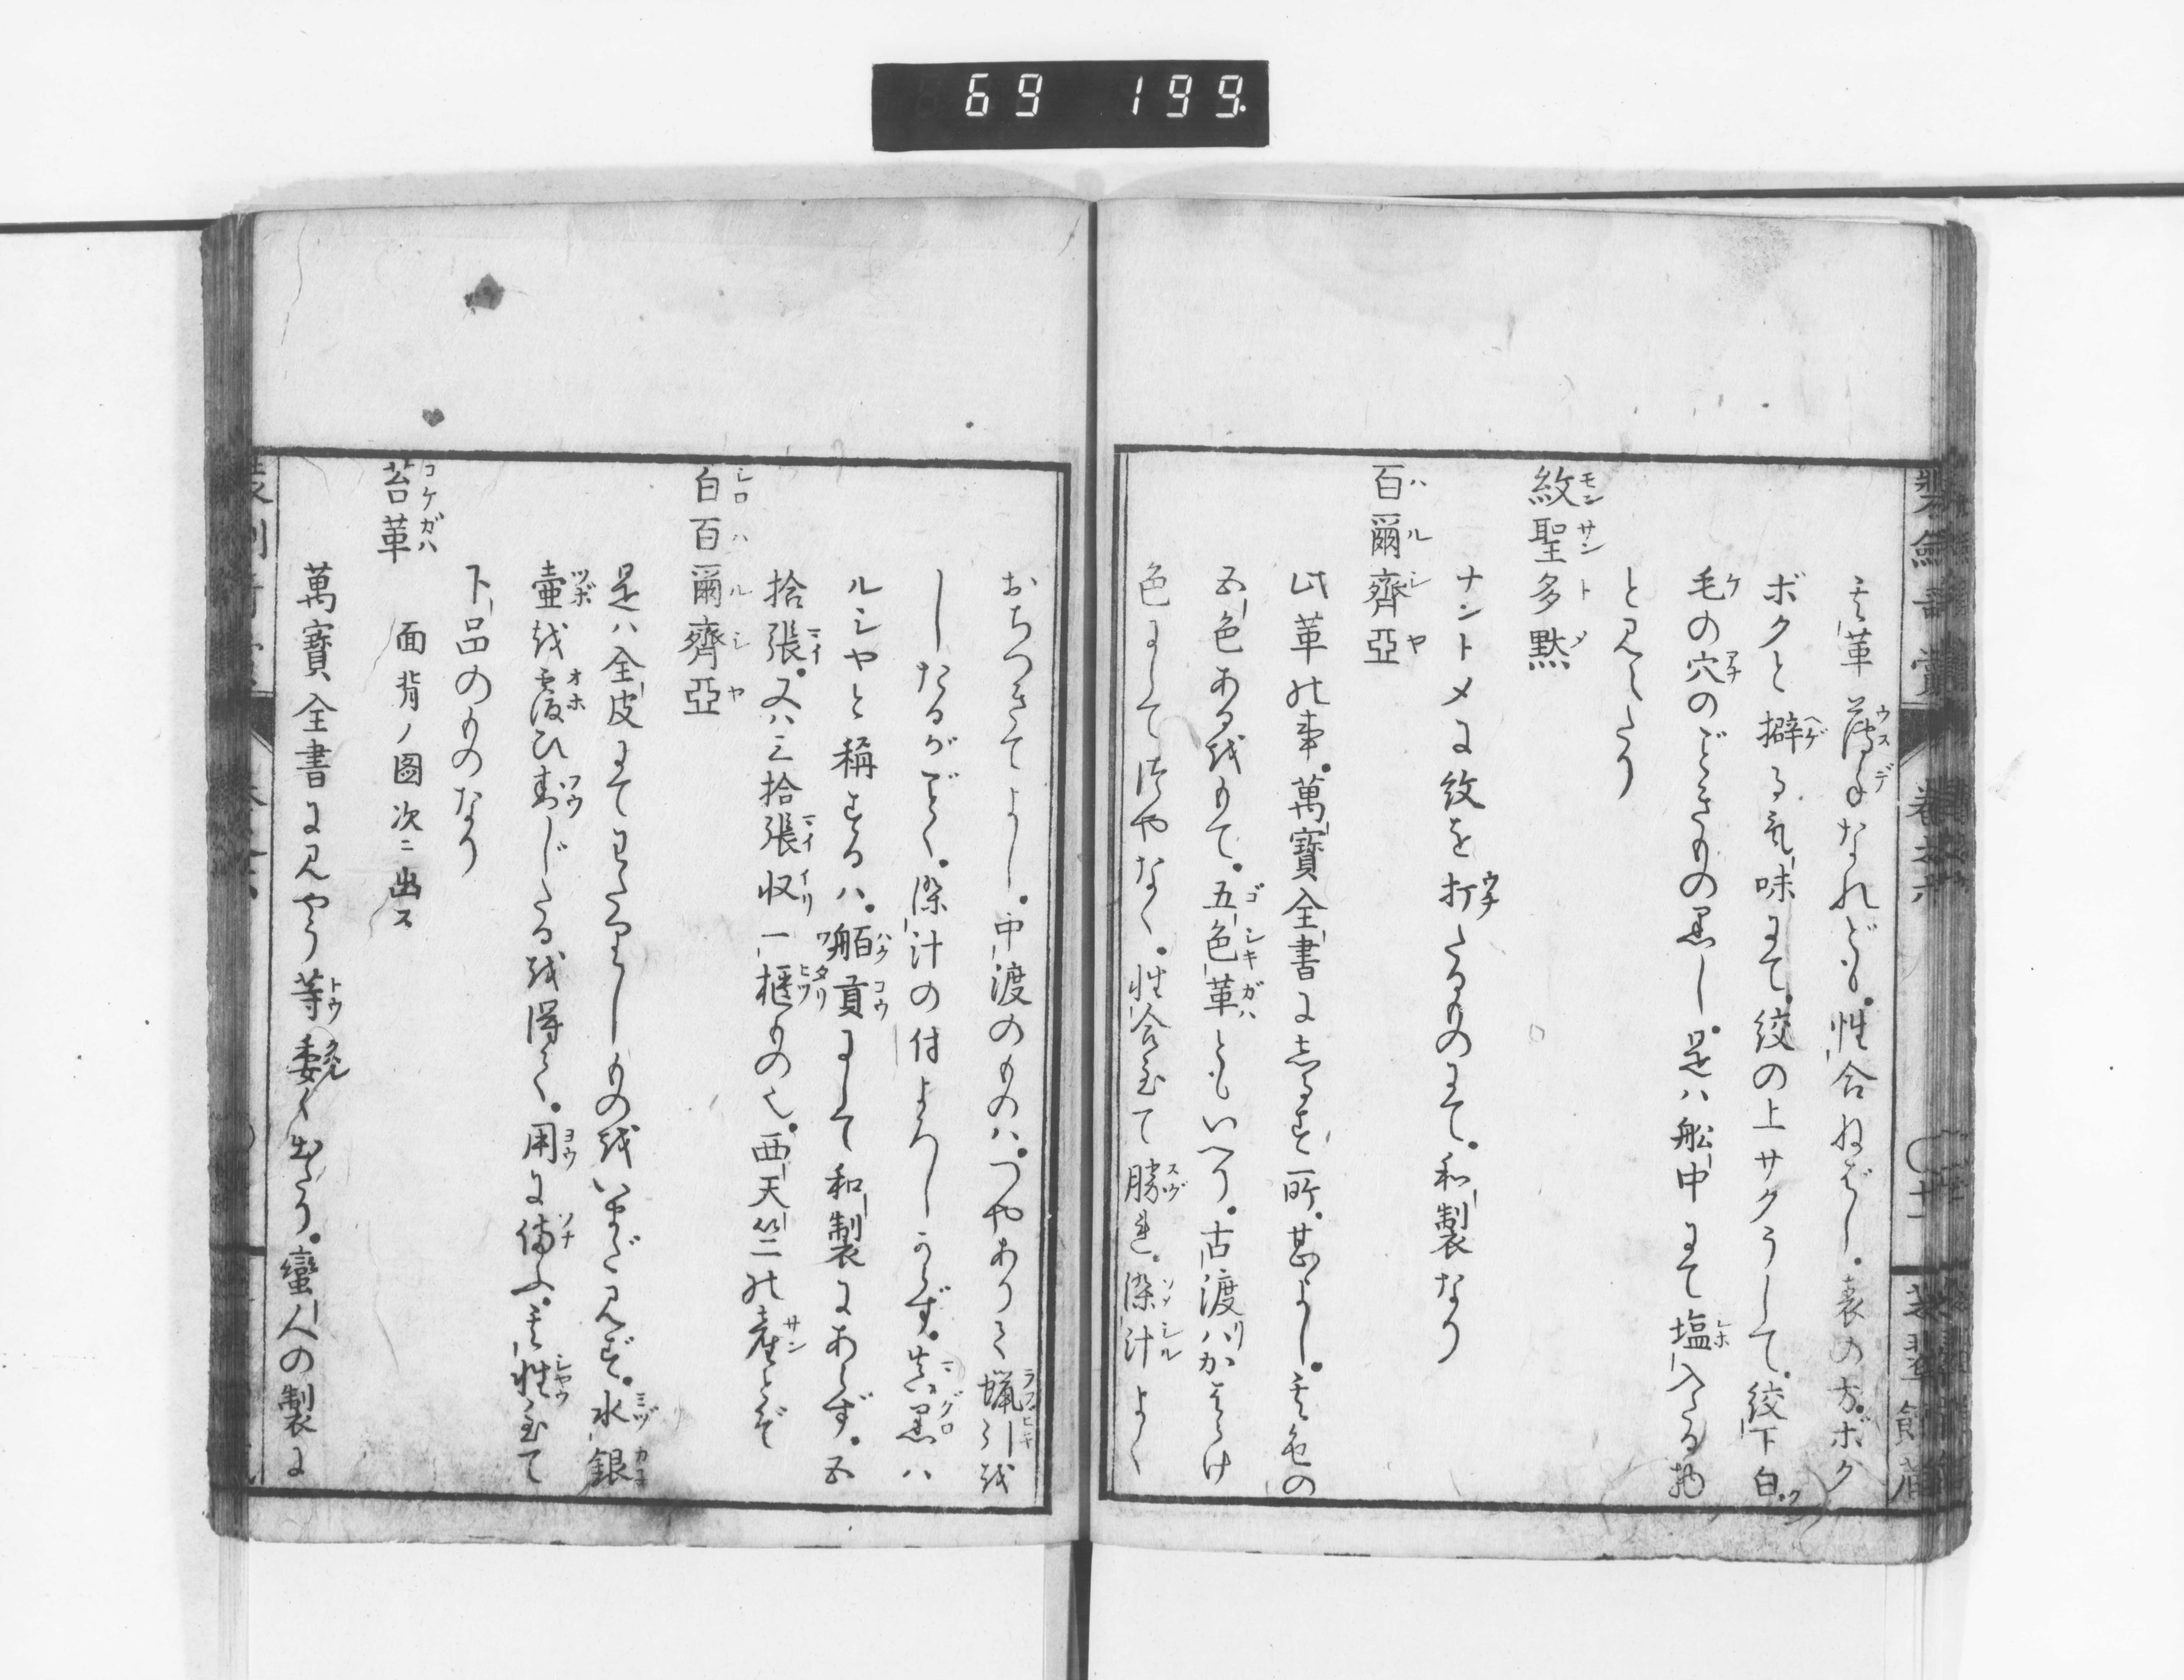 69 199
其革薄手なれども。性合ねばし。表の方ボク
ボクと擗る気味にて。絞の上サクうして。絞下白ク
毛の穴のごときもの黒し。是ハ舩中にて塩入たる物
と見へたり
紋聖多黙
ナントメに紋を打たるものにて。和製なり
百爾齊亞
此革の事。萬寳全書に志るす所。甚よし。其色の
五色あるを以て。五色革ともいへり。古渡ハ
色にして。つやなく。性合至て勝れ。染汁よく
おちつきてよし。中渡のものハ。つやありて蝋引を
したるがごとく。染汁の付よろしからず。真黒ハ
ルシヤと稱するハ。舶貢にして和製にあらず。五
拾張。又ハ三拾張収一櫃もの也。西天竺の産とぞ
白百爾齊亞
是ハ全皮にてわたりしものをいまだ見ず。水銀
壷を覆ひ封じたるを得て。用に備ふ。其性至て
下品のものなり
苔革 面背ノ圖次ニ出ス
萬寳全書に見やう等委く出たり。蠻人の製に